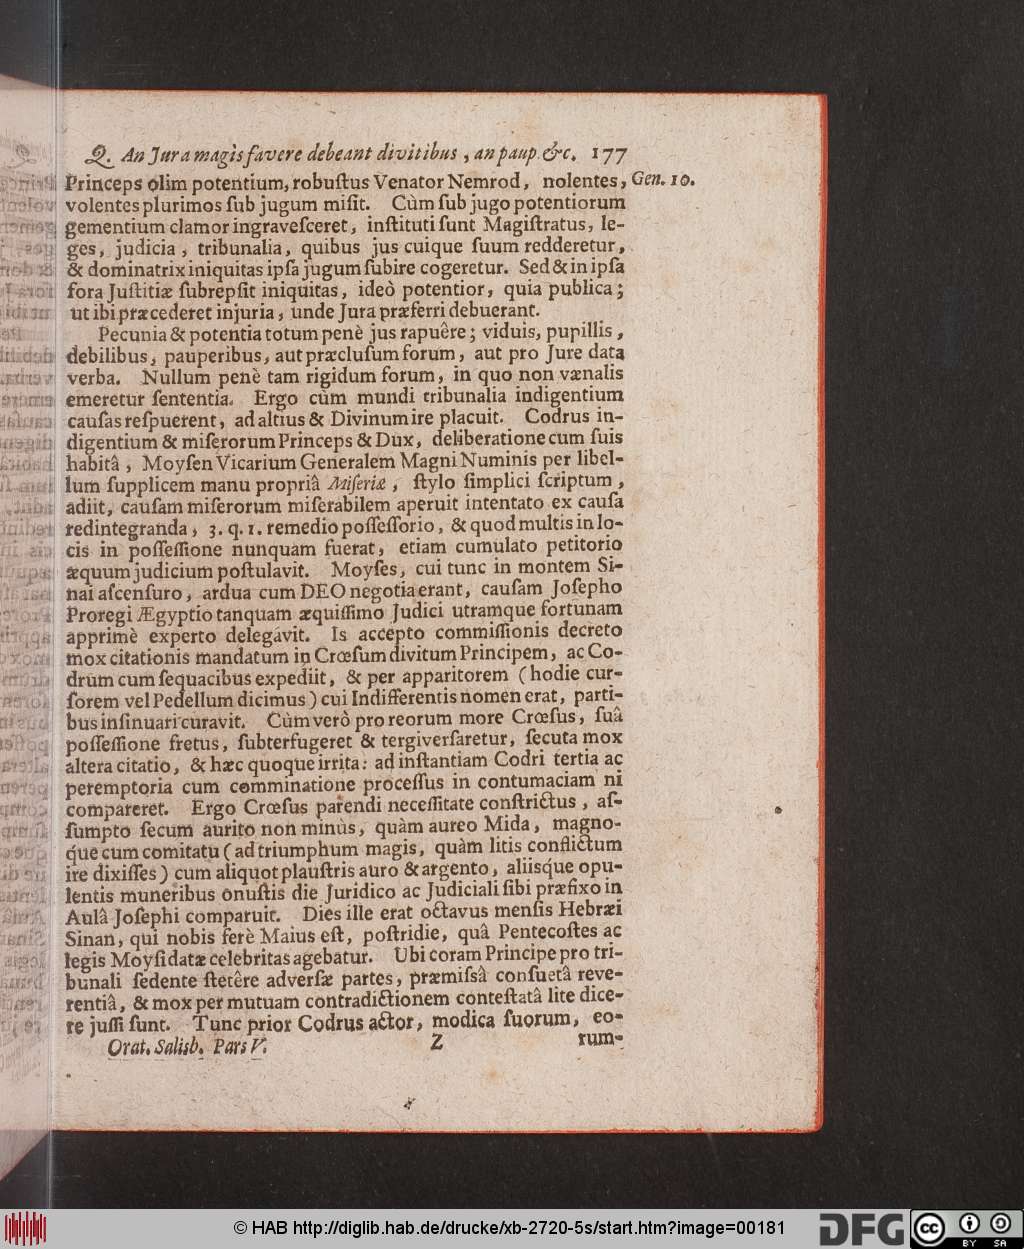 Q. An Jura magìs favere debeant divitibus, an paup. &c. 177
Princeps olim potentium, robuſtus Venator Nemrod, nolentes, Gen. 10.
volentes plurimos ſub jugum miſit. Cùm ſub jugo potentiorum
gementium clamor ingraveſceret, inſtituti ſunt Magiſtratus, le-
ges, judicia, tribunalia, quibus jus cuique ſuum redderetur,
& dominatrix iniquitas ipſa jugum ſubire cogeretur. Sed & in ipſa
fora Juſtitiæ ſubrepſit iniquitas, ideò potentior, quia publica;
ut ibi præcederet injuria, unde Jura præferri debuerant.
Pecunia & potentia totum penè jus rapuêre; viduis, pupillis,
debilibus, pauperibus, aut præcluſum forum, aut pro Jure data
verba. Nullum penè tam rigidum forum, in quo non vænalis
emeretur ſententia. Ergo cùm mundi tribunalia indigentium
cauſas reſpuerent, ad altius & Divinum ire placuit. Codrus in-
digentium & miſerorum Princeps & Dux, deliberatione cum ſuis
habitâ, Moyſen Vicarium Generalem Magni Numinis per libel-
lum ſupplicem manu propriâ Miſeriæ, ſtylo ſimplici ſcriptum,
adiit, cauſam miſerorum miſerabilem aperuit intentato ex cauſa
redintegranda, 3. q. 1. remedio poſſeſſorio, & quod multis in lo-
cis in poſſeſſione nunquam fuerat, etiam cumulato petitorio
æquum judicium poſtulavit. Moyſes, cui tunc in montem Si-
nai aſcenſuro, ardua cum DEO negotia erant, cauſam Joſepho
Proregi Ægyptio tanquam æquiſſimo Judici utramque fortunam
apprimè experto delegavit. Is accepto commiſſionis decreto
mox citationis mandatum in Crœſum divitum Principem, ac Co-
drum cum ſequacibus expediit, & per apparitorem (hodie cur-
ſorem vel Pedellum dicimus) cui Indifferentis nomen erat, parti-
bus inſinuari curavit. Cùm verò pro reorum more Crœſus, ſuâ
poſſeſſione fretus, ſubterfugeret & tergiverſaretur, ſecuta mox
altera citatio, & hæc quoque irrita: ad inſtantiam Codri tertia ac
peremptoria cum comminatione proceſſus in contumaciam ni
compareret. Ergo Crœſus parendi neceſſitate conſtrictus, aſ-
ſumpto ſecum aurito non minùs, quàm aureo Mida, magno-
q́ue cum comitatu (ad triumphum magis, quàm litis conflictum
ire dixiſſes) cum aliquot plauſtris auro & argento, aliisq́ue opu-
lentis muneribus onuſtis die Juridico ac Judiciali ſibi præfixo in
Aulâ Joſephi comparuit. Dies ille erat octavus menſis Hebræi
Sinan, qui nobis ferè Maius eſt, poſtridie, quâ Pentecoſtes ac
legis Moyſi datæ celebritas agebatur. Ubi coram Principe pro tri-
bunali ſedente ſtetêre adverſæ partes, præmiſsâ conſuetâ reve-
rentiâ, & mox per mutuam contradictionem conteſtatâ lite dice-
re juſſi ſunt. Tunc prior Codrus actor, modica ſuorum, eo-
Orat. Salisb. Pars V. Z rum-
© HAB http://diglib.hab.de/drucke/xb-2720-5s/start.htm?image=00181 DFG cc BY SA